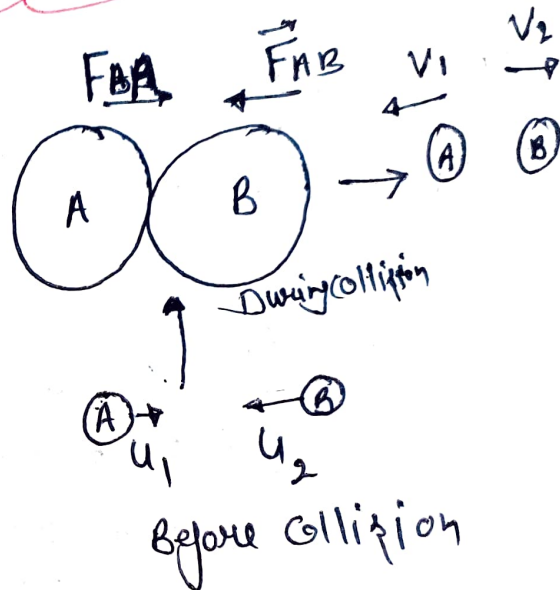 F_BA F_AB V₁ V₂
A B A B
During Collision
A B
U₁ U₂
Before Collision